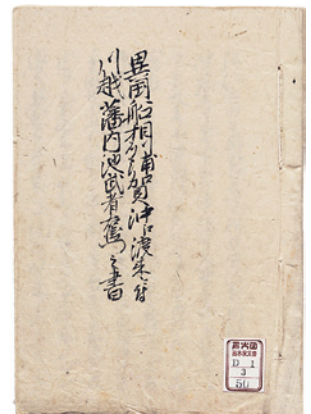 異国船相州浦賀沖江渡来ニ付
川越藩内池武者右衛門之書
D 1
3
50